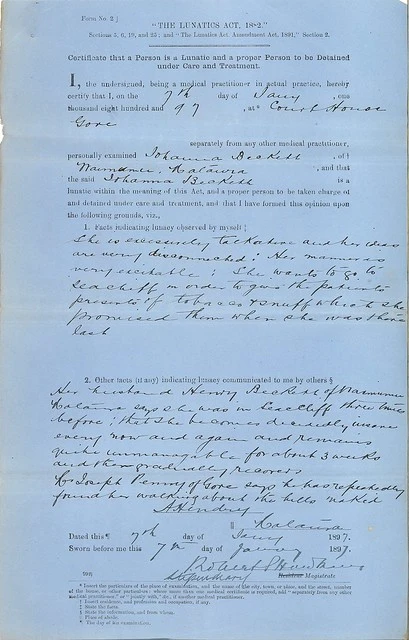 Form No. 2
"THE LUNATICS ACT, 1882."
Sections 5, 6, 19, and 25; and "The Lunatics Act Amendment Act, 1891," Section 2.
Certificate that a Person is a Lunatic and a proper Person to be Detained
under Care and Treatment.
I, the undersigned, being a medical practitioner in actual practice, hereby
certify that I, on the 7th day of Jany, one
thousand eight hundred and 97, at* Court House
Gore
separately from any other medical practitioner,
personally examined Johanna Beckett, of†
Waimumu, Mataura, and that
the said Johanna Beckett is a
lunatic within the meaning of this Act, and a proper person to be taken charge of
and detained under care and treatment, and that I have formed this opinion upon
the following grounds, viz.,
1. Facts indicating lunacy observed by myself‡
She is excessively talkative and her ideas
are very disconnected: Her manner is
very excitable: She wants to go to
Seacliff in order to give the patients
presents of tobacco & snuff which she
promised them when she was there
last
2. Other facts (if any) indicating lunacy communicated to me by others §
Her husband Henry Beckett of Waimumu
Mataura says she was in Seacliff three times
before; that she becomes decidedly insane
every now and again and remains
quite unmanagable for about 3 weeks
and then gradually recovers
Mr Joseph Penny of Gore says he has repeatedly
found her walking about the hills naked
Mataura
Dated this ¶ 7th day of Jany 1897.
Sworn before me this 7th day of January 1897.
Stipendiary Resident Magistrate
* Insert the particulars of the place of examination, and the name of the city, town, or place, and the street, number
of the house, or other particulars: where more than one medical certificate is required, add "separately from any other
medical practitioner," or "jointly with," &c., if another medical practitioner.
† Insert residence, and profession and occupation, if any.
‡ State the facts.
§ State the information, and from whom.
‖ Place of abode.
¶ The day of his examination.